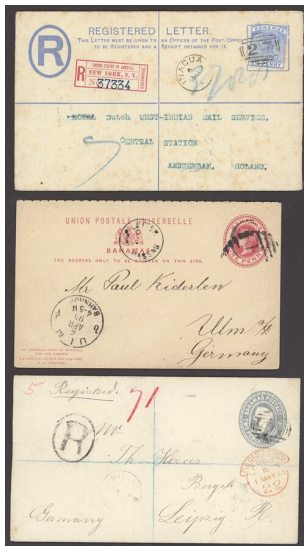 REGISTERED LETTER.
THIS LETTER MUST BE GIVEN TO AN OFFICER OF THE POST OFFICE
TO BE REGISTERED AND A RECEIPT OBTAINED FOR IT.
R
BAHAMAS
UNITED STATES OF AMERICA
NEW YORK, N.Y.
No 37334
INAGUA
27
ROYAL Dutch WEST-INDIAN MAIL SERVICE,
CENTRAL STATION
AMSTERDAM, HOLAND.
UNION POSTALE UNIVERSELLE
BAHAMAS
THE ADDRESS ONLY TO BE WRITTEN ON THIS SIDE.
ONE PENNY
Mr Paul Kiderlen
Ulm a/D
Germany
ULM
BAHNHOF
5 APR
5 m
Registered.
71
R
REGISTERED
1 MAY
Th. Heros
Bergstr
Germany
Leipzig R.